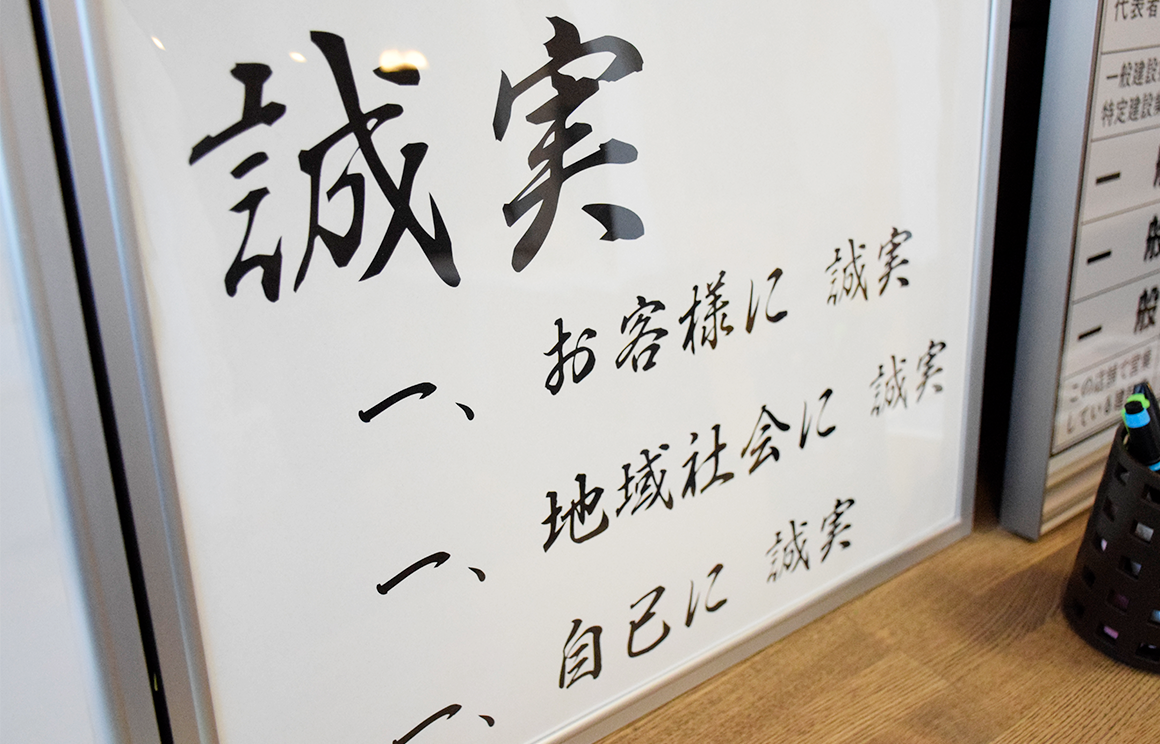 誠実
一、お客様に 誠実
一、地域社会に 誠実
一、自己に 誠実
代表者
一般建設
特定建設業
一 般
一 般
一 般
この店舗で営業
している建設